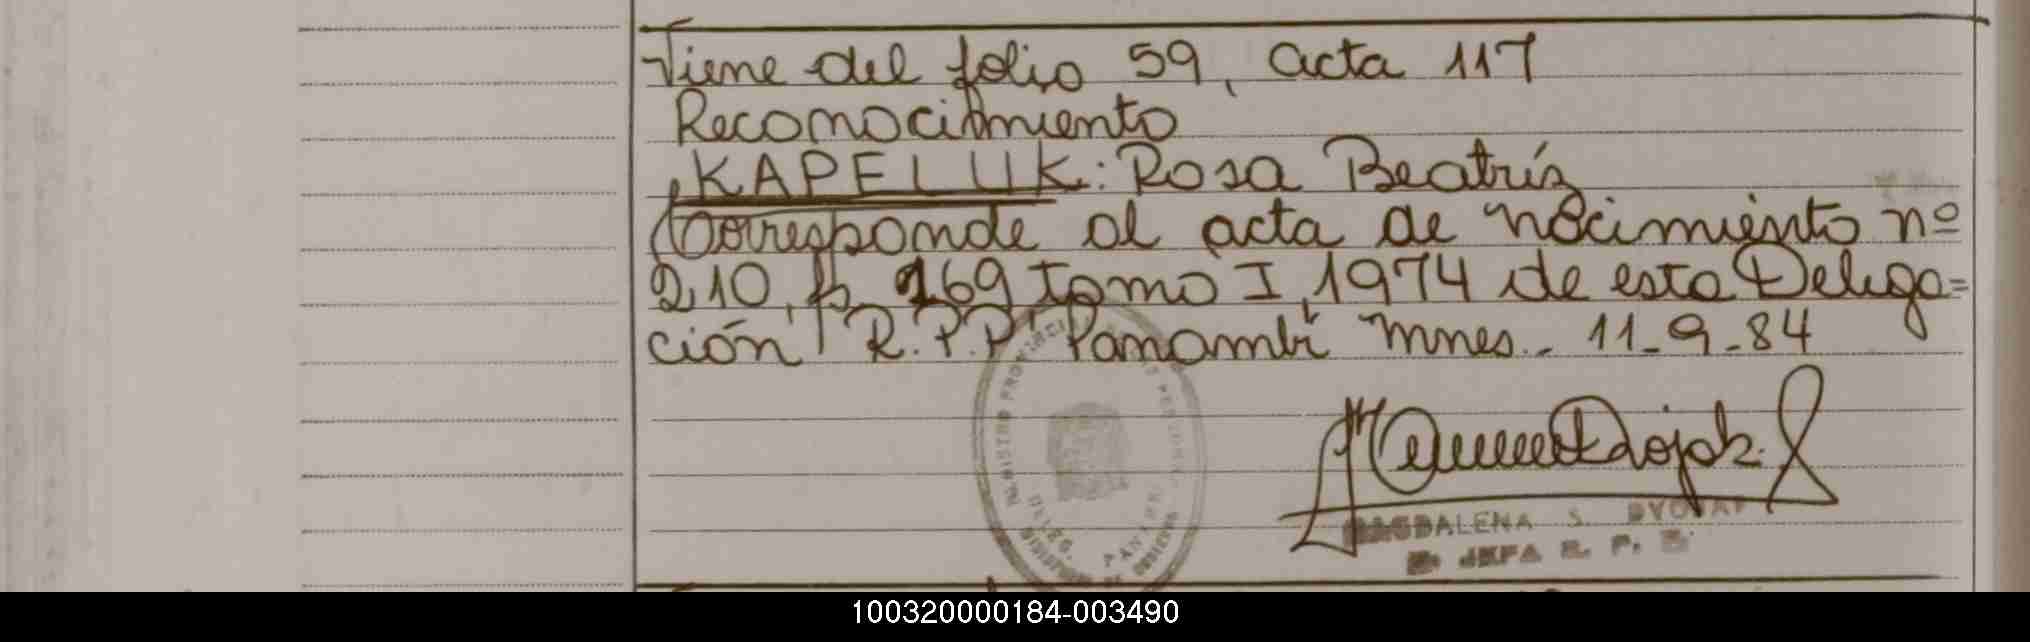 Viene del folio 59, acta 117
Reconocimiento
KAPELUK: Rosa Beatríz
Corresponde al acta de nacimiento nº
210, fs. 169 tomo I, 1974 de esta Delega=
ción R.P.P. Panambí Mnes.- 11-9-84
REGISTRO PROVINCIAL DE LAS PERSONAS
DELEG. PANAMBI
MAGDALENA S. DVOJAK
JEFA R. P. P.
100320000184-003490